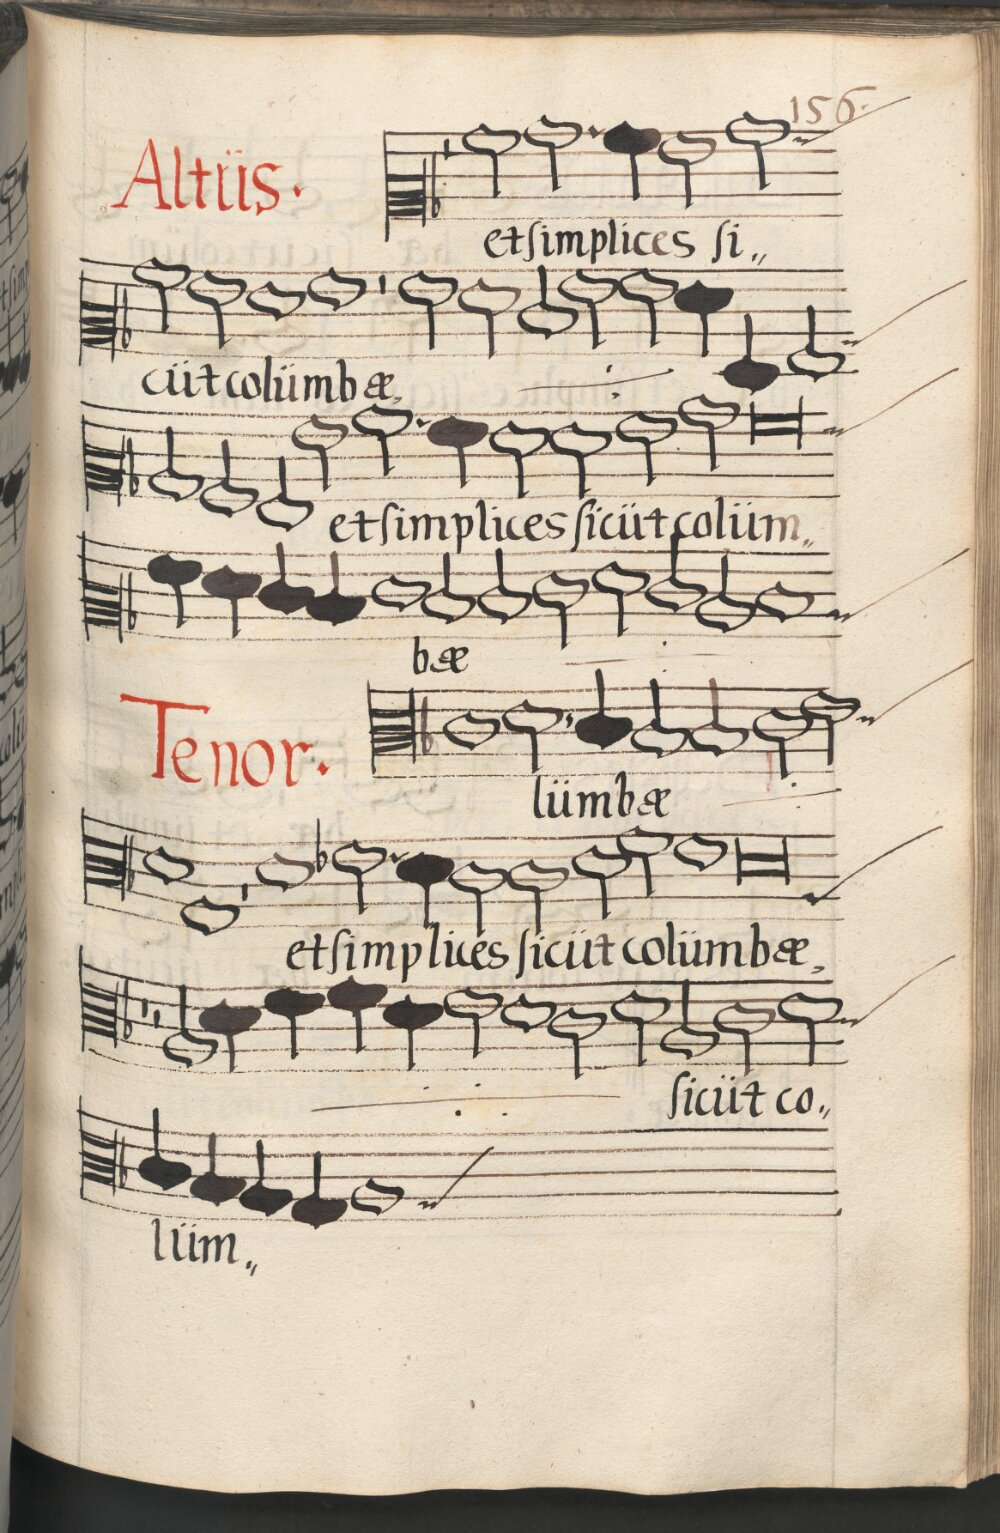 156.
Altüs.
etsimplices si„
cüt colümbæ,
etsimplices sicüt colüm„
bæ
Tenor.
lümbæ
etsimplices sicüt colümbæ,
sicüt co„
lüm„